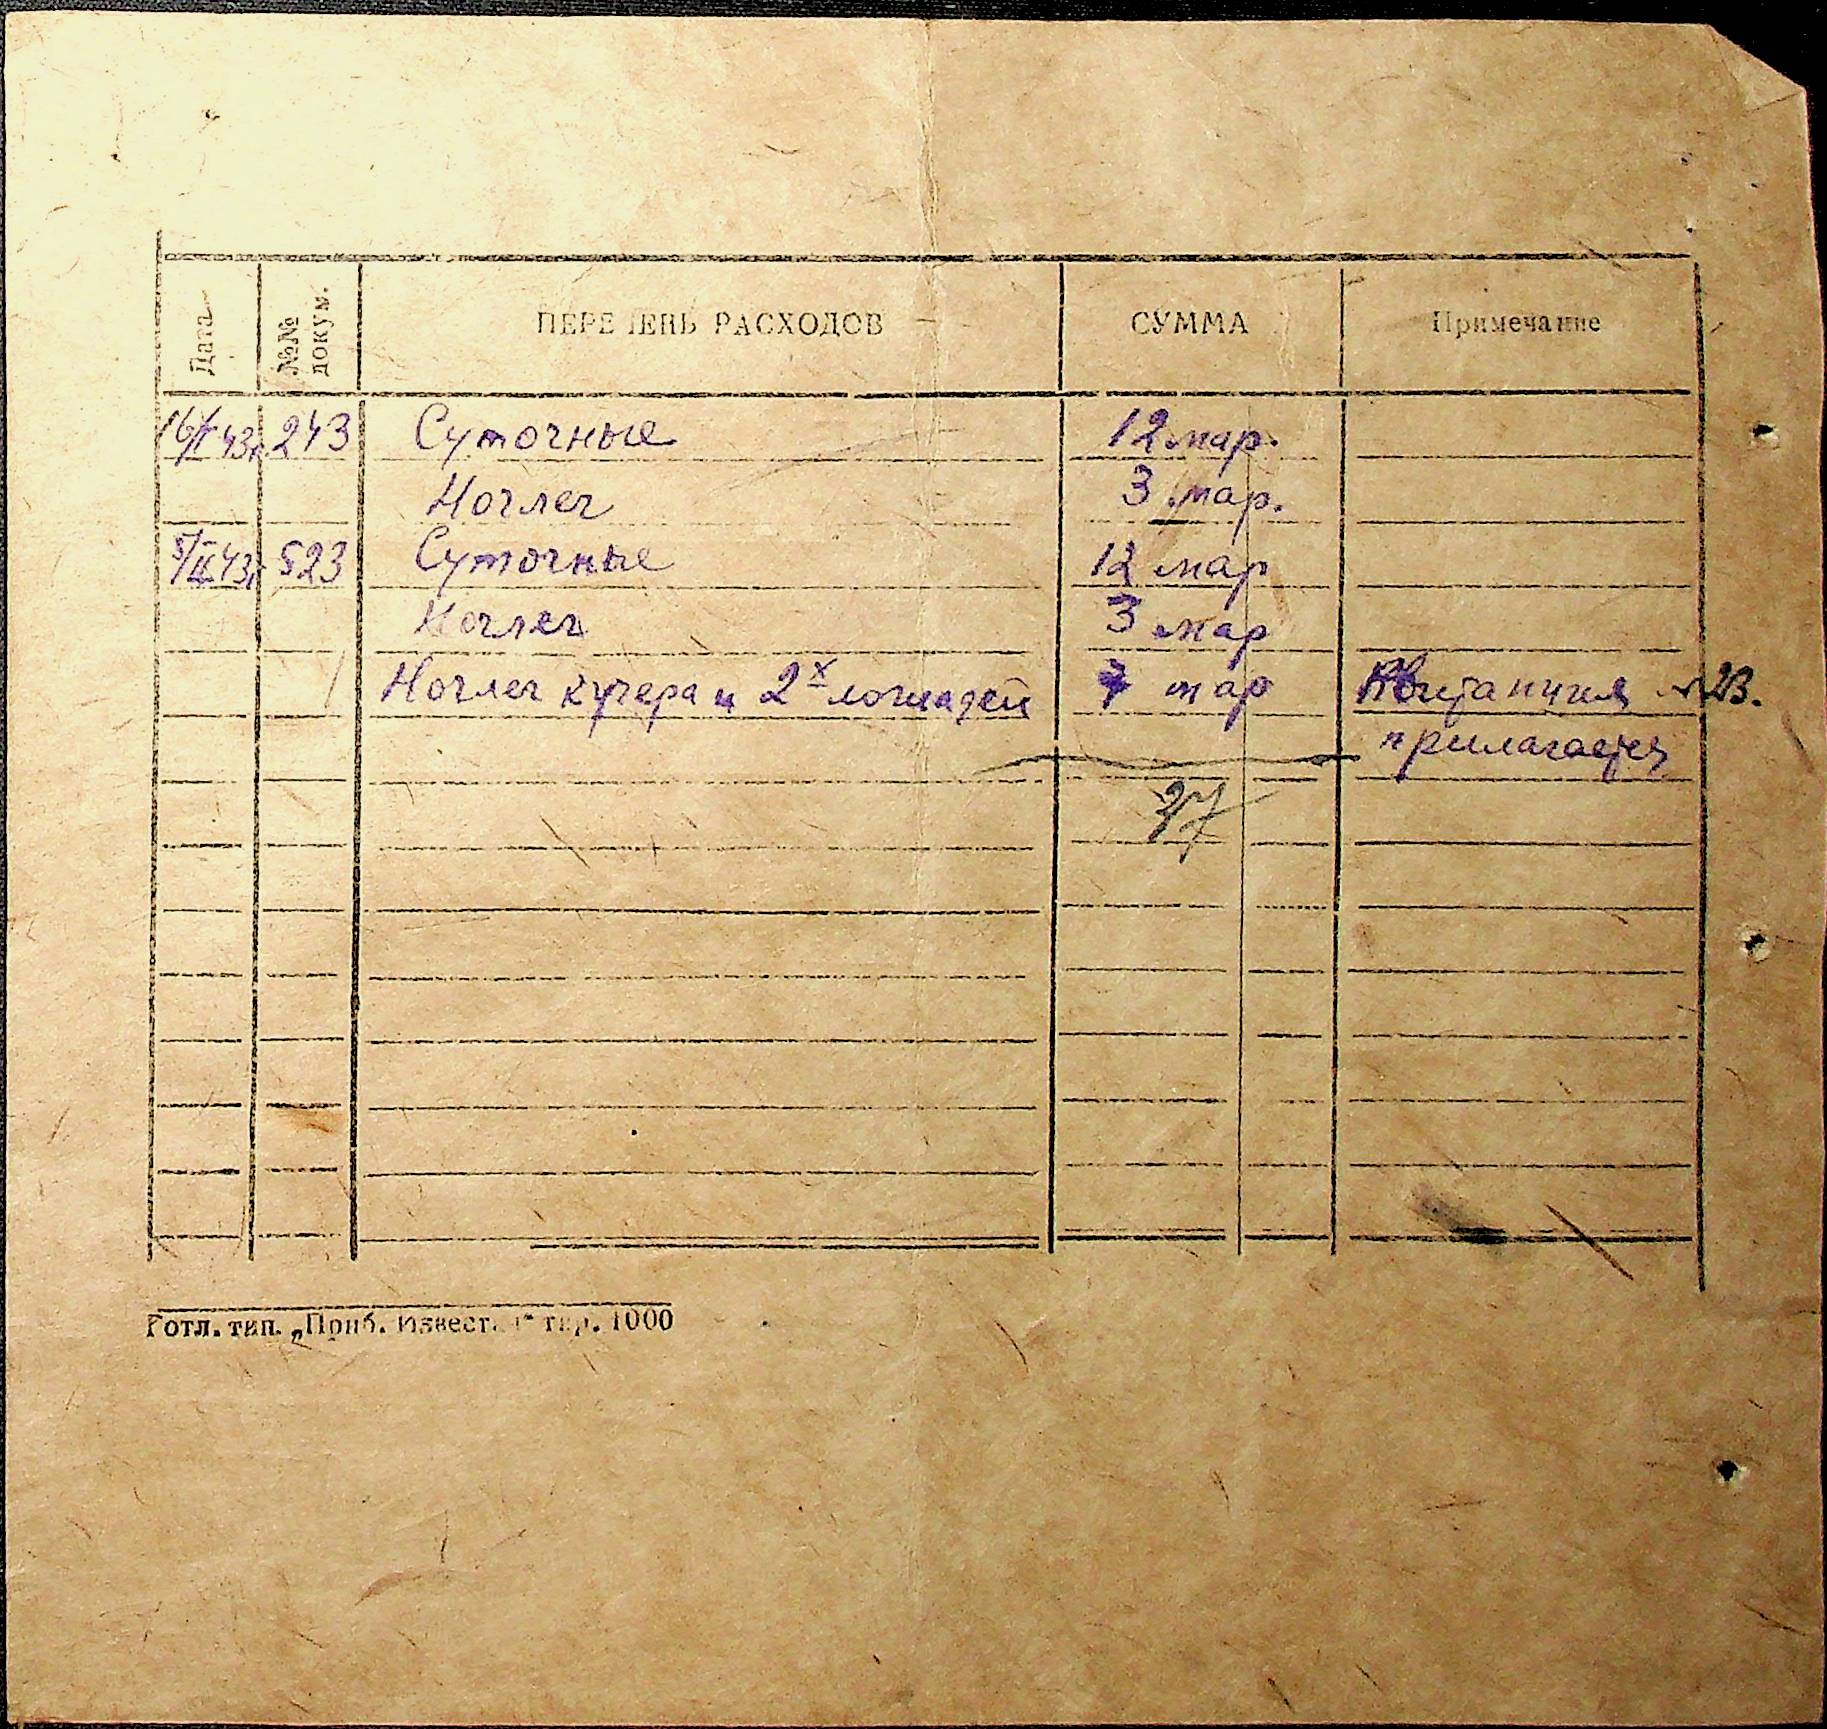 Дата №№ докум. ПЕРЕЧЕНЬ РАСХОДОВ СУММА Примечание
16/II 43г. 243 Суточные 12 мар.
Ночлег 3 мар.
5/II 43г. 523 Суточные 12 мар
Ночлег 3 мар
Ночлег кучера и 2х лошадей 7 мар Квитанция № 23.
прилагается
37
Готл. тип. „Приб. Известия“ тир. 1000